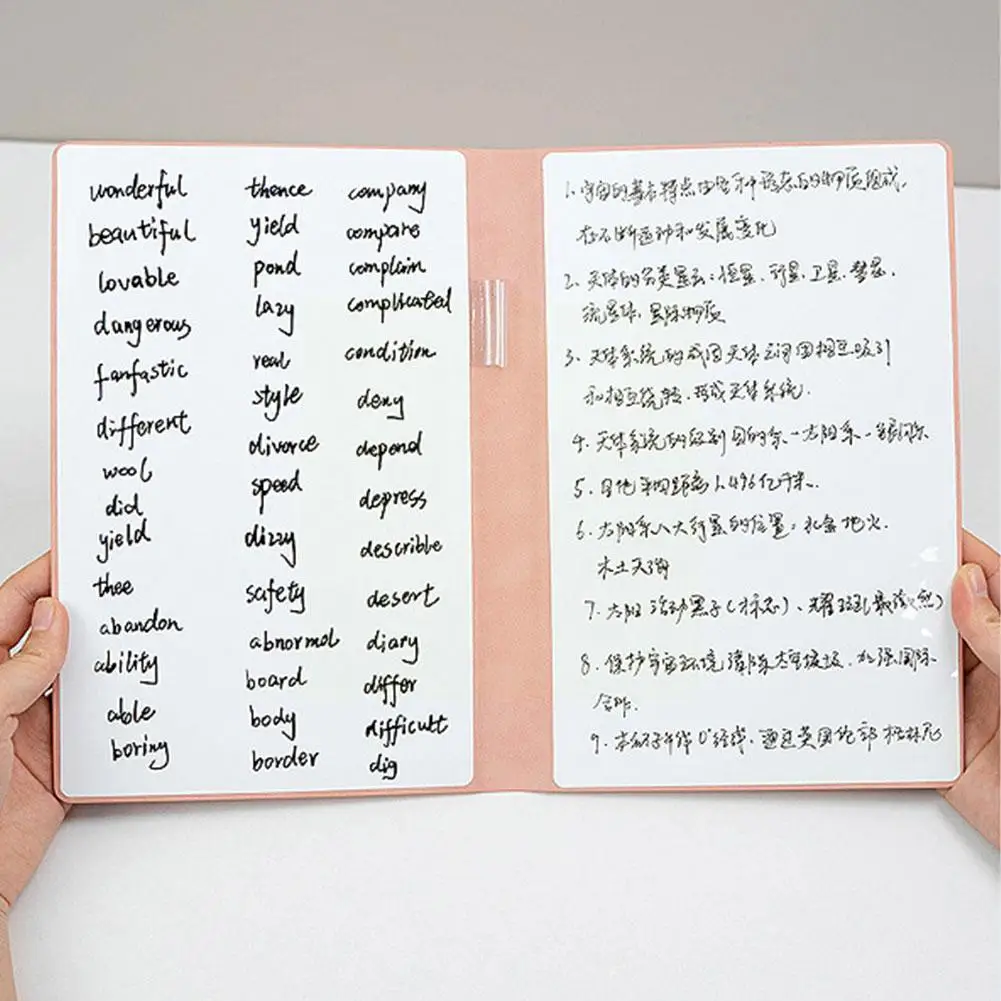 wonderful
beautiful
lovable
dangerous
fanfastic
different
wool
did
yield
thee
abandon
ability
able
boring
thence
yield
pond
lazy
real
style
divorce
speed
dizzy
safety
abnormal
board
body
border
company
compare
complain
complicated
condition
deny
depend
depress
describle
desert
diary
differ
difficult
dig
1. 宇宙的基本特点由各种形态的物质组成,
在不断运动和发展变化
2. 天体的分类星云、恒星、行星、卫星、彗星、
流星体、星际物质
3. 天体系统的成因天体之间因相互吸引
和相互绕转,形成天体系统.
4. 天体系统的级别 地月系-太阳系-银河系
5. 日地平均距离 1.496亿千米.
6. 太阳系八大行星的位置:水金地火
木土天海
7. 太阳活动黑子(标志)、耀斑(最激烈)
8. 保护宇宙环境 清除太空垃圾、加强国际
合作.
9. 本初子午线 0°经线,通过英国伦敦格林尼